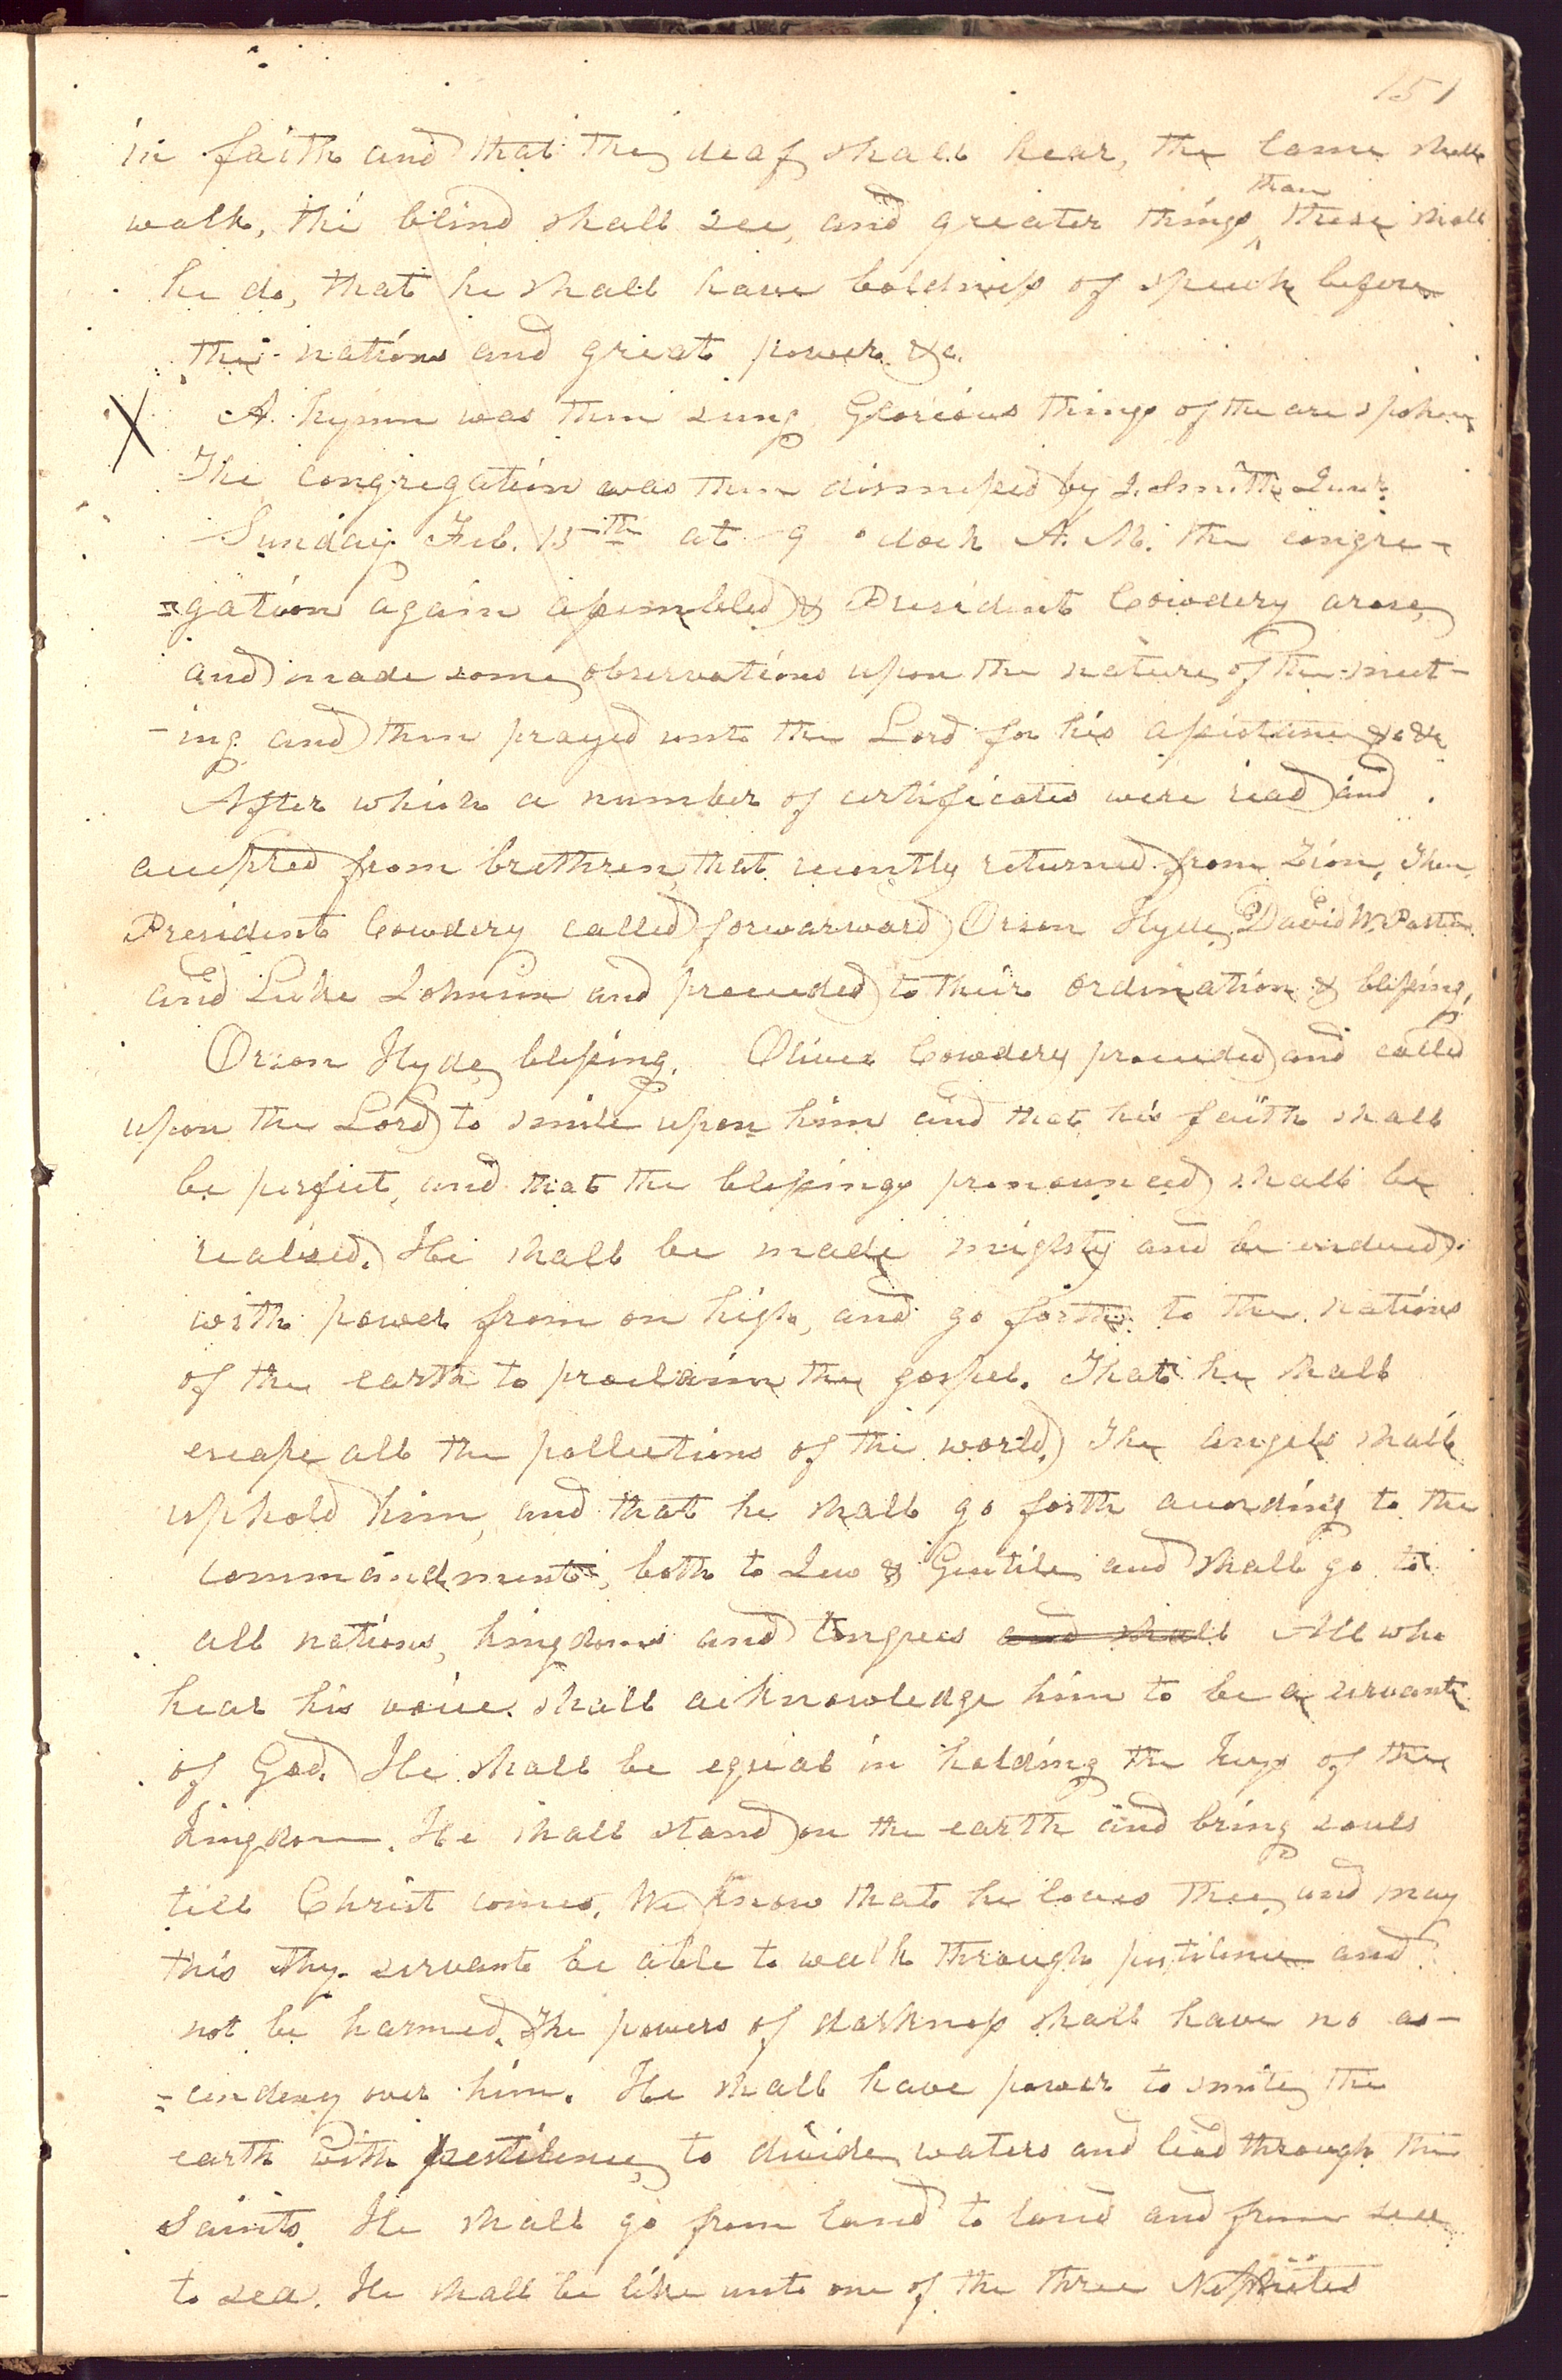 151
in faith and that the deaf shall hear, the lame shall
walk, the blind shall see, and greater things than these shall
he do, that he shall have boldness of speech before
the nations and great power &c.
X A hymn was then sung, Glorious things of the are spoken
The congregation was then dismissed by J. Smith Junr.
Sunday Feb. 15th at 9 oclock A. M. the congre-
=gation again assembled & President Cowdery arose,
and made some observations upon the nature of the meet-
-ing and then prayed unto the Lord for his assistance &c &c
After which a number of certificates were read and
accepted from brethren, that recently returned from Zion, Then
President Cowdery called forwarward Orson Hyde, David W. Patten
and Luke Johnson and proceeded to their ordination & blessing,
Orson Hyde, blessing. Oliver Cowdery proceeded and called
upon the Lord to smile upon him and that his faith shall
be perfect, and that the blessings pronounced shall be
realised. He shall be made mighty and be endued
with power from on high, and go forth to the nations
of the earth to proclaim the gospel. That he shall
escape all the pollutions of the world. The angels shall
uphold him, and that he shall go forth according to the
commandment, both to Jew & Gentile and shall go to
all nations, kingdoms and tongues and shall All who
hear his voice shall acknowledge him to be a servant
of God. He shall be equal in holding the keys of the
kingdom. He shall stand on the earth and bring souls
till Christ comes. We know that he loves thee, and may
this thy servant be able to walk through pestilence and
not be harmed. The powers of darkness shall have no as-
=cendency over him. He shall have power to smite the
earth with pestilence, to divide waters and lead through the
Saints. He shall go from land to land and from sea
to sea. He shall be like unto one of the three Nephites